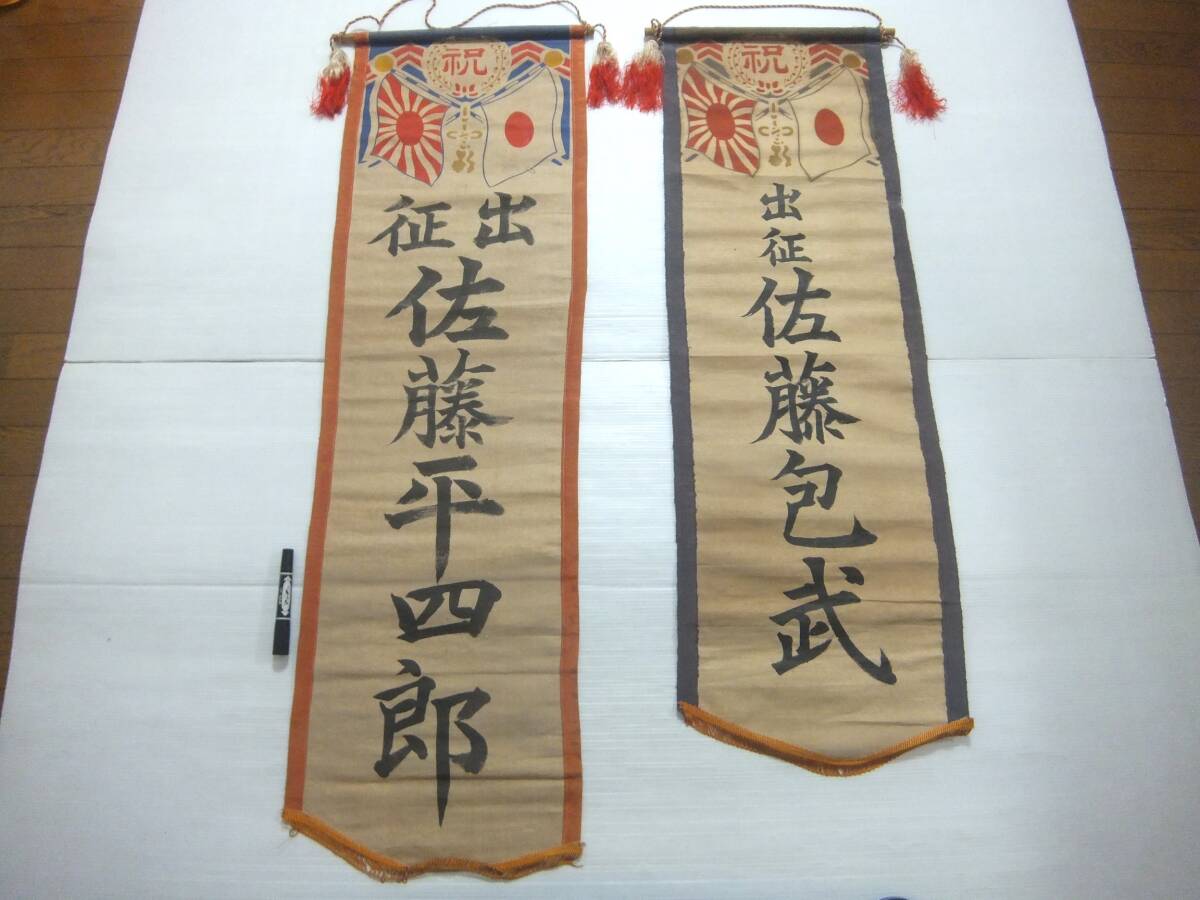 祝
出征
佐藤平四郎
祝
出征
佐藤包武